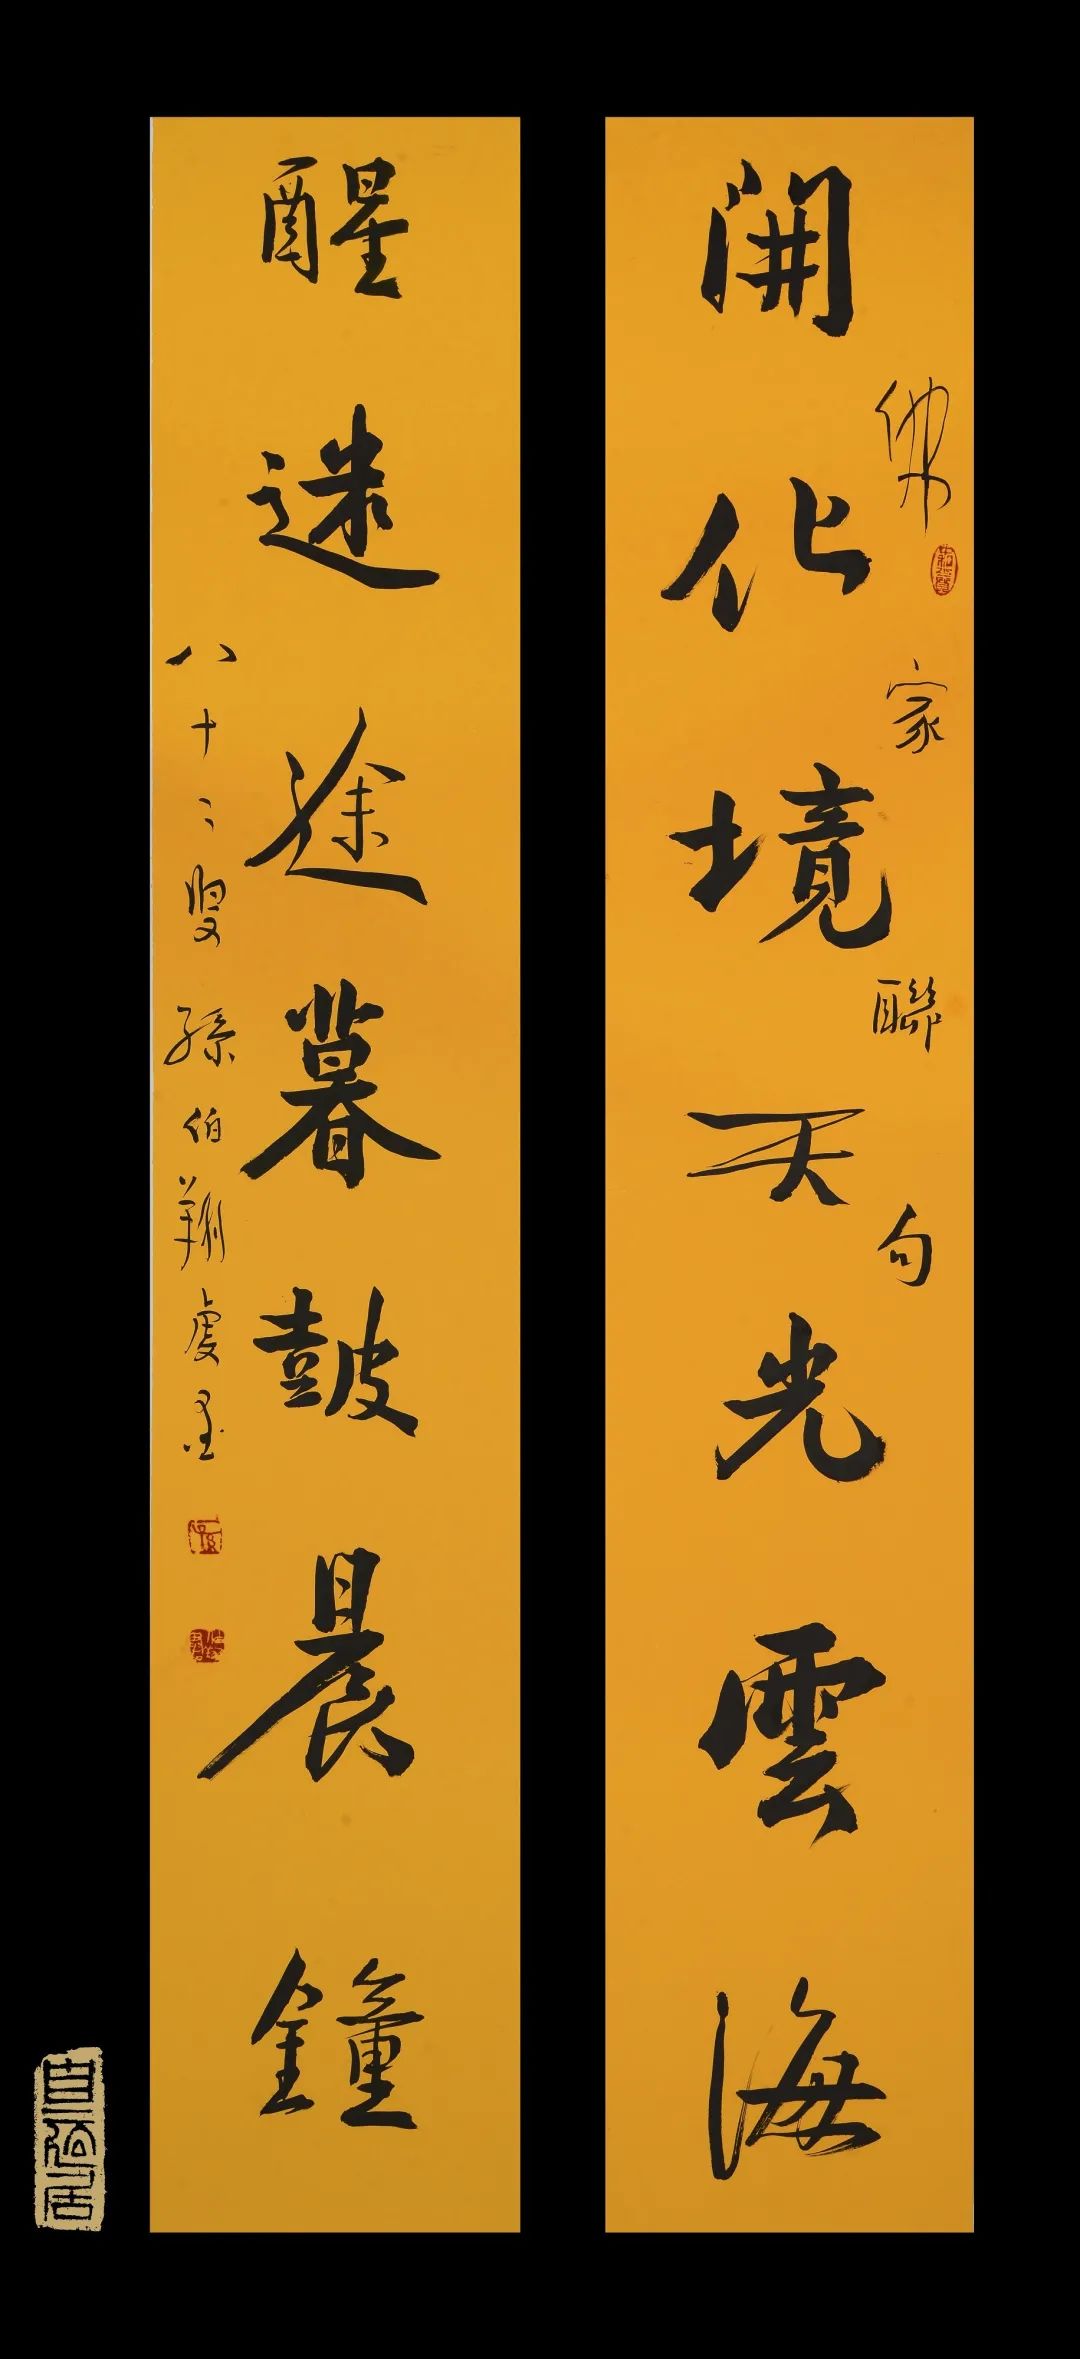 佛家聯句
開化境天光雲海
醒迷途暮鼓晨鐘
八十二叟孫伯翔虔